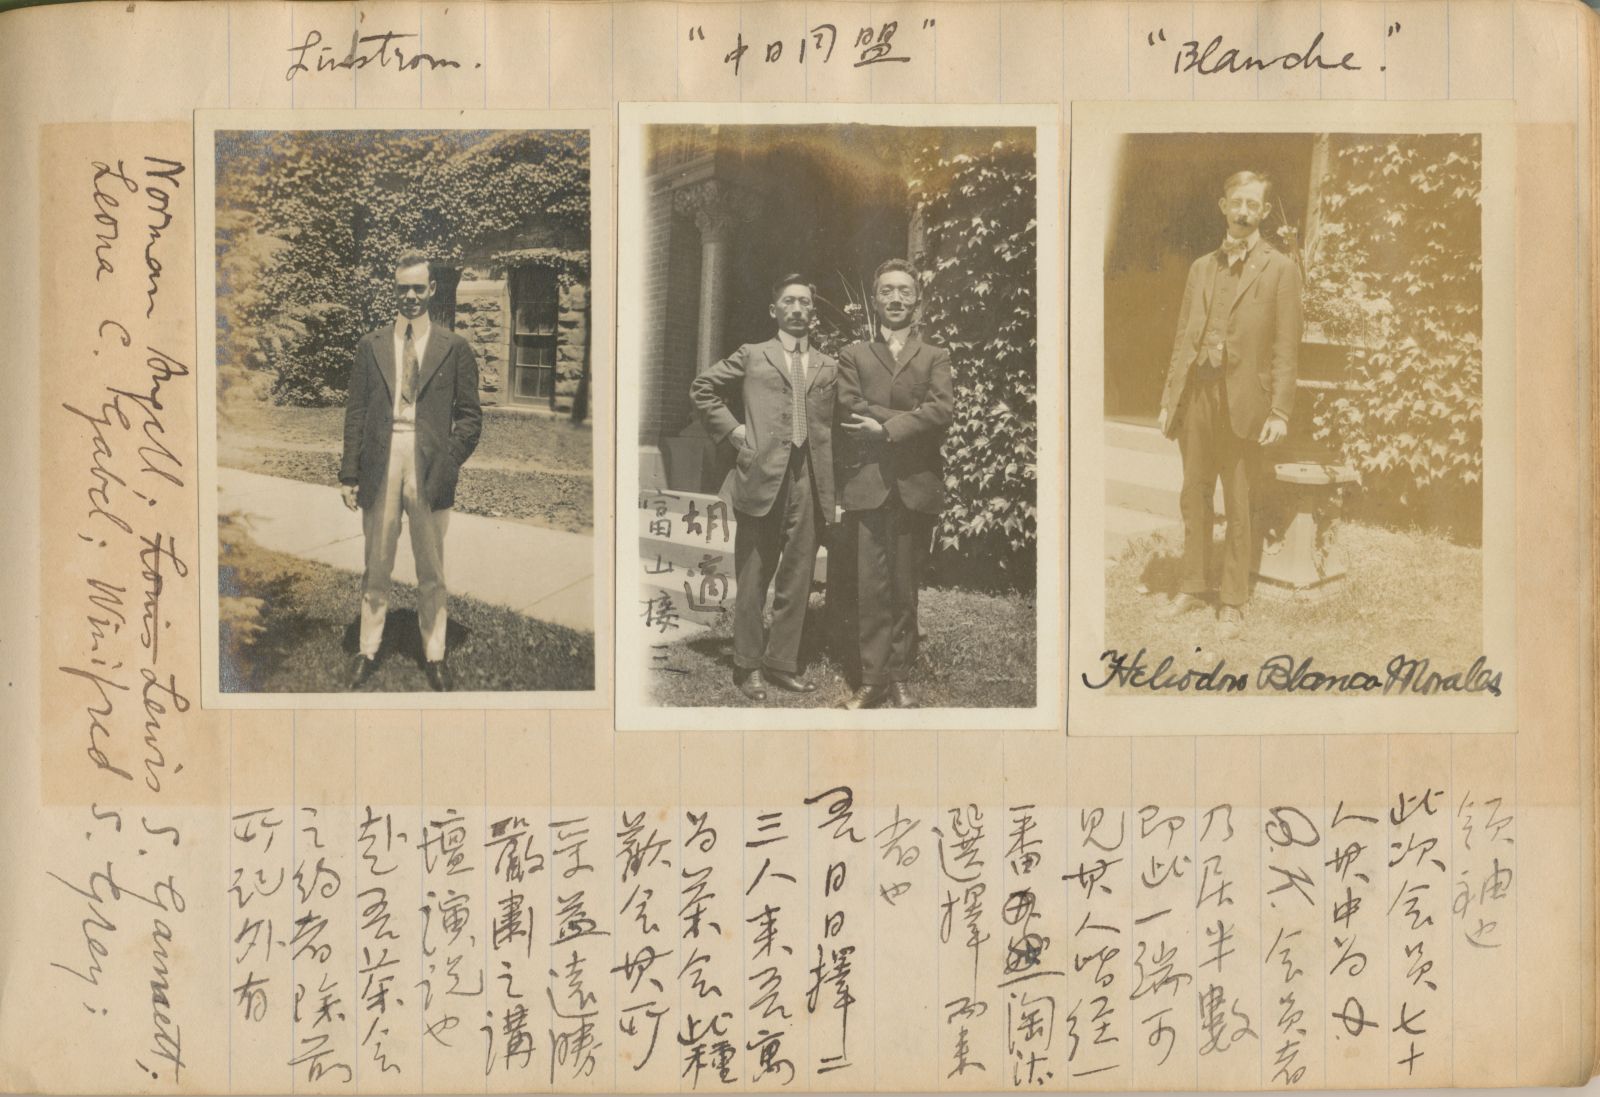 Linstrom.
"中日同盟"
"Blanche."
胡適
富山接三
Heliodoro Blanco Morales
領袖也
此次会員七十
人其中为Φ.
B.K.会員者
乃居半數
即此一端可
見其人皆经一
番淘汰
選擇而来
者也
吾日日擇二
三人来吾寓
为茶会此種
歡会其所
受益遠勝
嚴肅之講
壇演説也
赴吾茶会
之约者除前
所記外有
Norman Angell; Louis Lewis S. Gannett;
Leona C. Gabel; Winifred S. Grey;